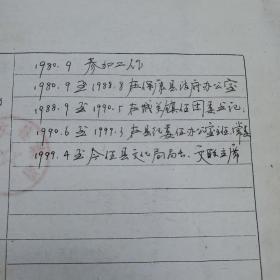 1980.9 参加工作
1980.9至1988.8在保康县政府办公室
1988.9至1990.5在城关镇任团委书记
1990.6至1999.3在县纪委任办公室主任、常委
1999.4至今任县文化局局长、文联主席